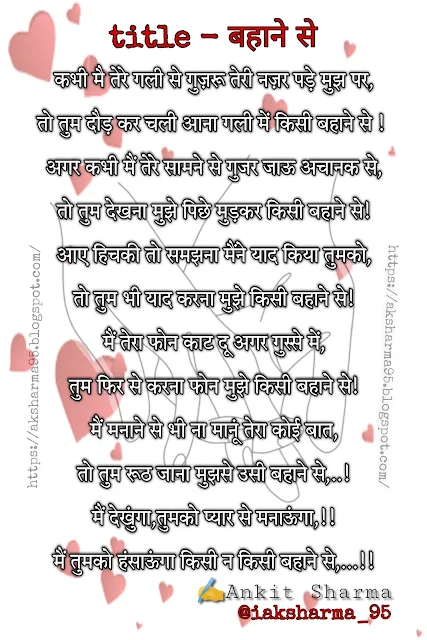 title - बहाने से
कभी मै तेरे गली से गुज़रू तेरी नज़र पड़े मुझ पर,
तो तुम दौड़ कर चली आना गली में किसी बहाने से !
अगर कभी मैं तेरे सामने से गुजर जाऊ अचानक से,
तो तुम देखना मुझे पिछे मुड़कर किसी बहाने से!
आए हिचकी तो समझना मैंने याद किया तुमको,
तो तुम भी याद करना मुझे किसी बहाने से!
मैं तेरा फोन काट दू अगर गुस्से में,
तुम फिर से करना फोन मुझे किसी बहाने से!
मैं मनाने से भी ना मानूं तेरा कोई बात,
तो तुम रूठ जाना मुझसे उसी बहाने से,..!
मैं देखुंगा,तुमको प्यार से मनाऊंगा,!!
मैं तुमको हंसाऊंगा किसी न किसी बहाने से,...!!
✍Ankit Sharma
@iaksharma_95
https://aksharma95.blogspot.com/
https://aksharma95.blogspot.com/